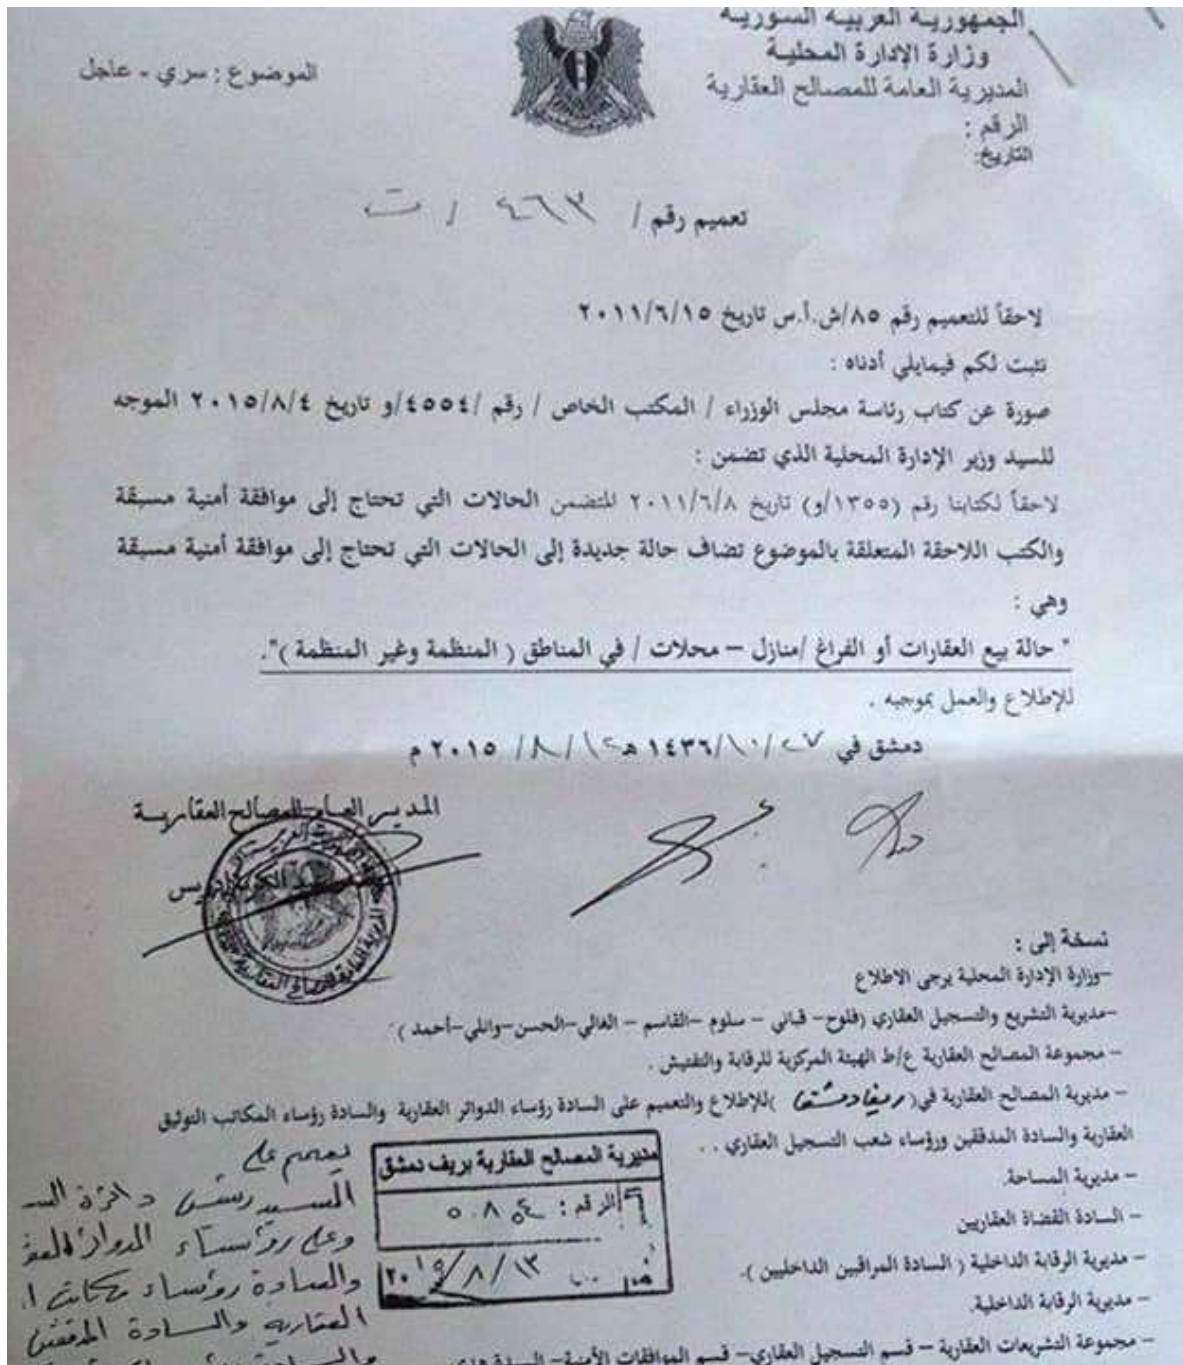 الجمهورية العربية السورية
وزارة الإدارة المحلية
المديرية العامة للمصالح العقارية
الرقم :
التاريخ:
الموضوع : سري - عاجل
تعميم رقم / ٤٦٣ / ت
لاحقاً للتعميم رقم ٨٥/ش.أ.س تاريخ ٢٠١١/٦/١٥
نثبت لكم فيمايلي أدناه :
صورة عن كتاب رئاسة مجلس الوزراء / المكتب الخاص / رقم /٤٥٥٤/و تاريخ ٢٠١٥/٨/٤ الموجه
للسيد وزير الإدارة المحلية الذي تضمن :
لاحقاً لكتابنا رقم (١٣٥٥/و) تاريخ ٢٠١١/٦/٨ المتضمن الحالات التي تحتاج إلى موافقة أمنية مسبقة
والكتب اللاحقة المتعلقة بالموضوع تضاف حالة جديدة إلى الحالات التي تحتاج إلى موافقة أمنية مسبقة
وهي :
" حالة بيع العقارات أو الفراغ /منازل – محلات / في المناطق ( المنظمة وغير المنظمة )".
للإطلاع والعمل بموجبه .
دمشق في ٢٧/١٠/١٤٣٦ هـ ١٢/٨/ ٢٠١٥ م
المدير العام للمصالح العقارية
نسخة إلى :
-وزارة الإدارة المحلية يرجى الاطلاع
-مديرية التشريع والتسجيل العقاري (فلوح– قباني – سلوم –القاسم – الغالي–الحسن–وانلي–أحمد )
– مجموعة المصالح العقارية ع/ط الهيئة المركزية للرقابة والتفتيش .
– مديرية المصالح العقارية في( ريف دمشق )للإطلاع والتعميم على السادة رؤساء الدوائر العقارية والسادة رؤساء المكاتب التوثيق
العقارية والسادة المدققين ورؤساء شعب التسجيل العقاري . .
– مديرية المساحة.
– السادة القضاة العقاريين
– مديرية الرقابة الداخلية ( السادة المراقبين الداخليين ).
– مديرية الرقابة الداخلية.
– مجموعة التشريعات العقارية – قسم التسجيل العقاري– قسم الموافقات الأمنية– السيدة
مديرية المصالح العقارية بريف دمشق
الرقم :
٢٠١٥/٨/١٣
يعمم على
السيد رئيس دائرة
وعلى رؤساء الدوائر
والسادة رؤساء مكاتب
العقارية والسادة المدققين